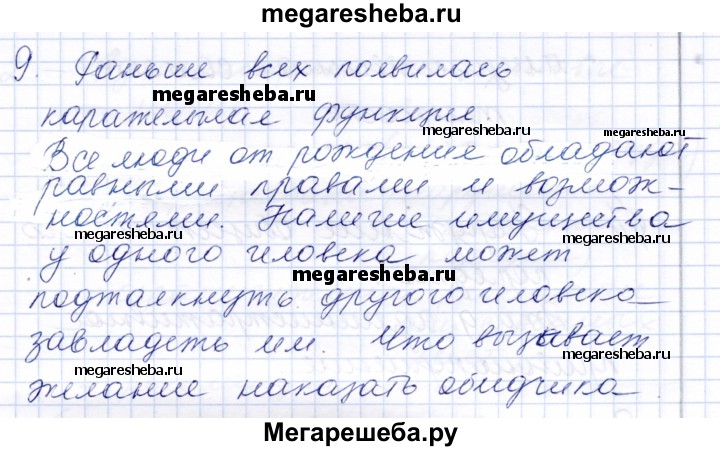 megaresheba.ru
9. Раньше всех появилась
megaresheba.ru
карательная функция.
megaresheba.ru
megaresheba.ru
Все люди от рождение обладают
равными правами и возмож-
megaresheba.ru
ностями. Наличие имущества
megaresheba.ru
у одного человека может
megaresheba.ru
подталкнуть другого человека
завладеть им. Что вызывает
megaresheba.ru
megaresheba.ru
желание наказать обидчика.
Мегарешеба.ру